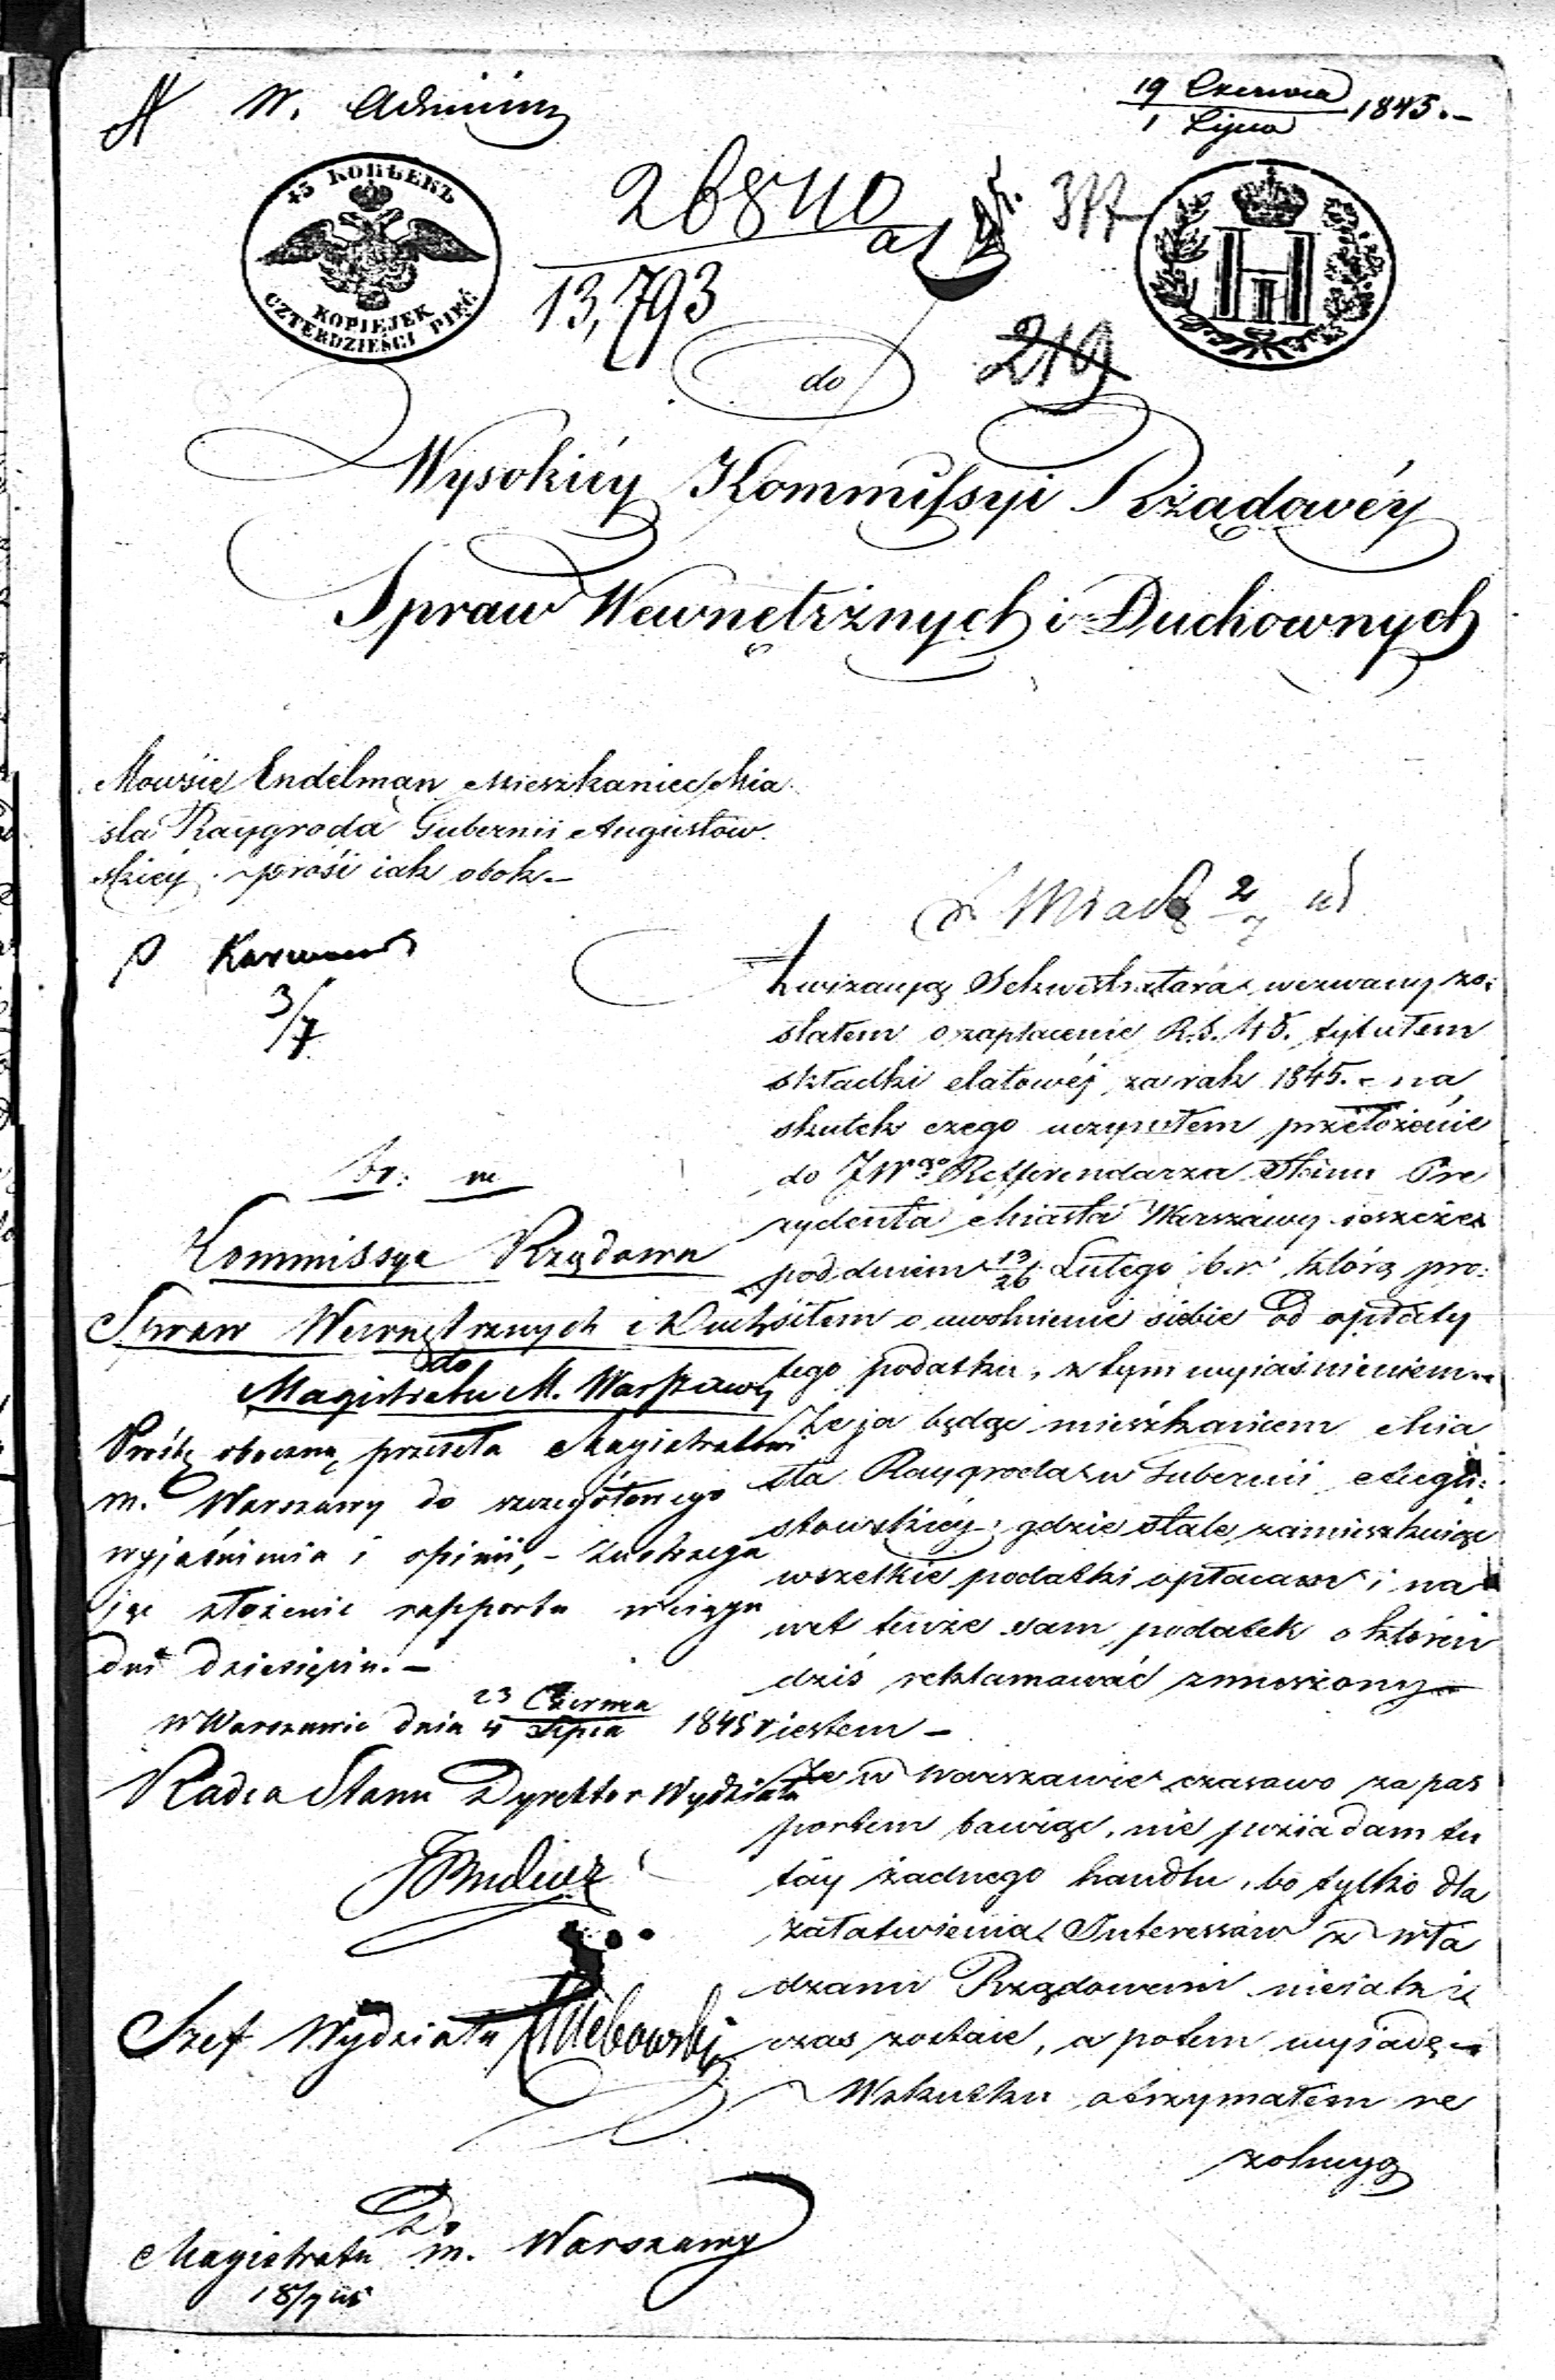 W. Admin
19 Czerwca
1 Lipca 1845.-
45 КОПѢЕКЪ
KOPIEJEK
CZTERDZIEŚCI PIĘĆ
26840
13,793
377
219
do
Wysokiéy Kommissyi Rządowéy
Spraw Wewnętrznych i Duchownych
Mowsie Endelman Mieszkaniec Mia
sta Raygroda Gubernii Augustow
skiéy prosi iak obok.-
3/7
Kommissya Rządowa
Spraw Wewnętrznych i Duch
do
Magistratu M. Warszawy
Prośbę oboczną przeseła Magistratowi
m. Warszawy do szczegółowego
wyjaśnienia i opinii, -
jąc złożenie rapportu w ciągu
dni dziesięciu.-
w Warszawie dnia 23 Czerwca
4 Lipca 1845 r
Radca Stanu Dyrektor Wydziału
Szef Wydziału
Do
Magistratu m. Warszawy
18/7 45
2/7 45
Exwizanią Sekwestratora wezwany zo:
stałem o zapłacenie R.S. 45. tytułem
składki etatowéj za rok 1845. - na
skutek czego uczyniłem przełożenie
do JWgo Refferendarza Stanu Pre
zydenta Miasta Warszawy ieszcze
pod dniem 13/26 Lutego b.r. którą pro:
siłem o uwolnienie siebie od opłaty
tego podatku, z tym wyiaśnieniem..
Że ja będąc mieszkańcem Mia
sta Raygroda w Gubernii Augu:
stowskiéy, gdzie stale zamieszkuiąc
wszelkie podatki opłacam i na
wet tenże sam podatek o którem
dziś reklamować zmuszony
iestem -
Że w Warszawie czasowo za pas
portem bawiąc, nie posiadam tu
táy żadnego handlu, bo tylko dla
załatwienia Interessów z wła
dzami Rządowemi nieiaki
czas zostaię, a potem wyiadę -
W skutku otrzymałem re
zolucyą